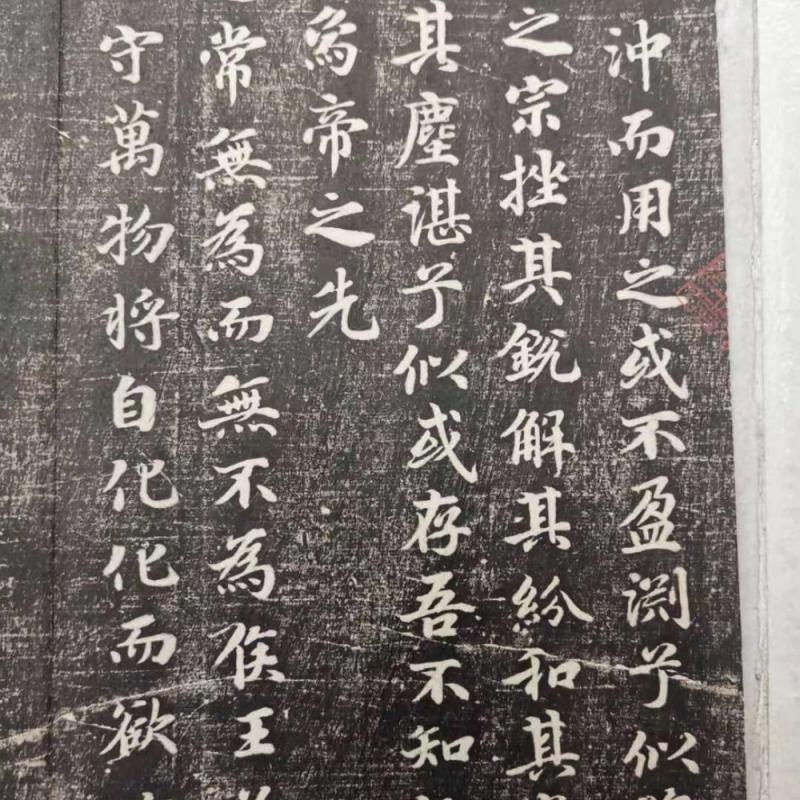 沖而用之或不盈渊兮似
之宗挫其銳解其紛和其
其塵湛兮似或存吾不知
象帝之先
常無為而無不為侯王
守萬物将自化化而欲